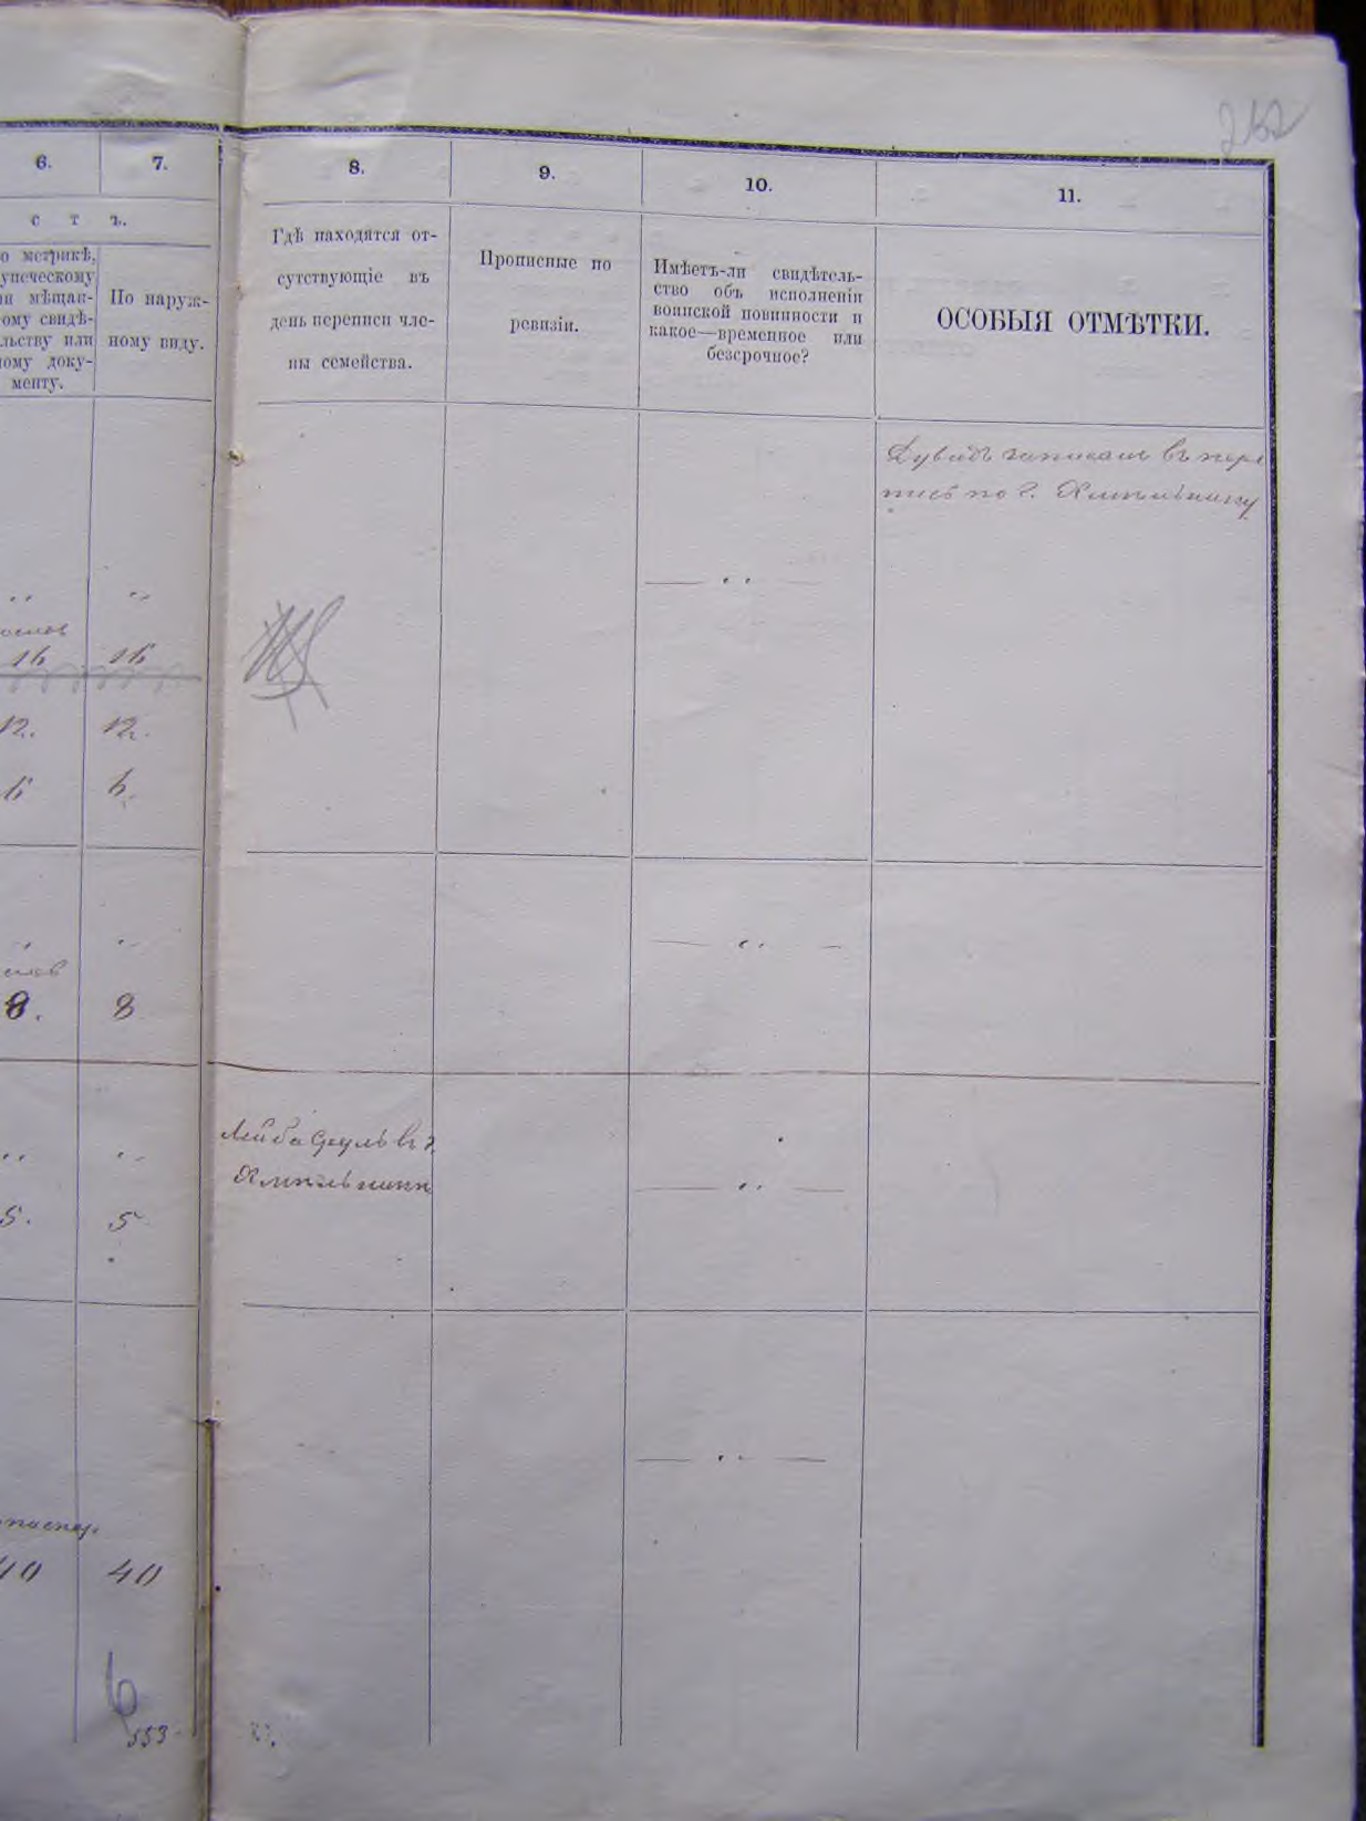 262
6.
7.
8.
9.
10.
11.
с т ъ.
о метрикѣ,
упеческому
ли мѣщан-
ому свидѣ-
льству или
ному доку-
менту.
По наруж-
ному виду.
Гдѣ находятся от-
сутствующіе въ
день переписи чле-
ны семейства.
Прописные по
ревизіи.
Имѣетъ-ли свидѣтель-
ство объ исполненіи
воинской повинности и
какое—временное или
безсрочное?
ОСОБЫЯ ОТМѢТКИ.
Дувидъ записанъ въ пере
пись по г. Хмельнику
16 16
12. 12.
6 6.
8. 8
Лейба Сруль въ г.
Хмельникѣ
5. 5
40 40
6
553